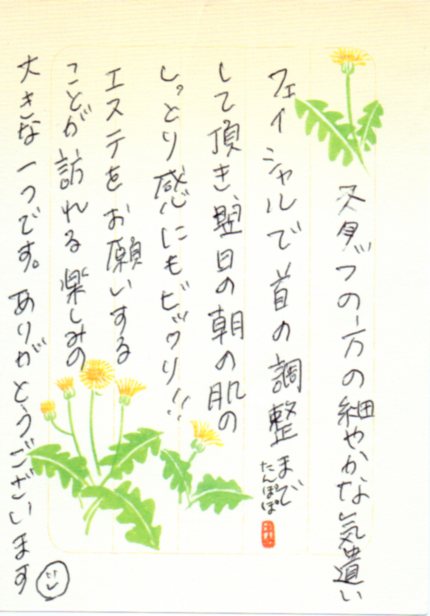 スタッフの方の細やかな気遣い
フェイシャルで首の調整まで
して頂き、翌日の朝の肌の
しっとり感にもビックリ!!
エステをお願いする
ことが訪れる楽しみの
大きな一つです。ありがとうございます
たんぽぽ